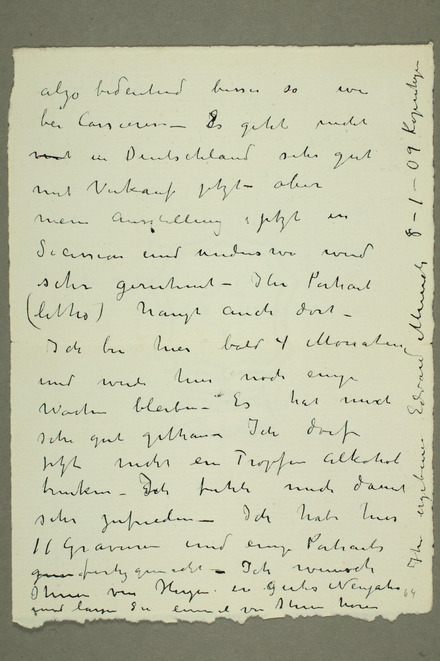 also bedeutend besser so wie
bei Cassirer – Es geht nicht
in Deutschland sehr gut
mit Verkauf jetzt – aber
meine Ausstellung jetzt in
Secession und anderswo wird
sehr gerühmt – Ihr Portrait
(litho) hängt auch dort –
Ich bin hier bald 4 Monaten
und werde hier noch einige
Wochen bleiben – Es hat mich
sehr gut gethan – Ich darf
jetzt nicht ein Tropfen Alkohol
trinken – Ich fühle mich damit
sehr zufrieden – Ich habe hier
11 Gravuren und einige Portraits
fertig gemacht – Ich wünsche
Ihnen von Herzen ein gutes Neujahr
und lassen Sie einmal von Ihnen hören
Ihr ergebener Edvard Munch 8–1–09 Kopenhagen